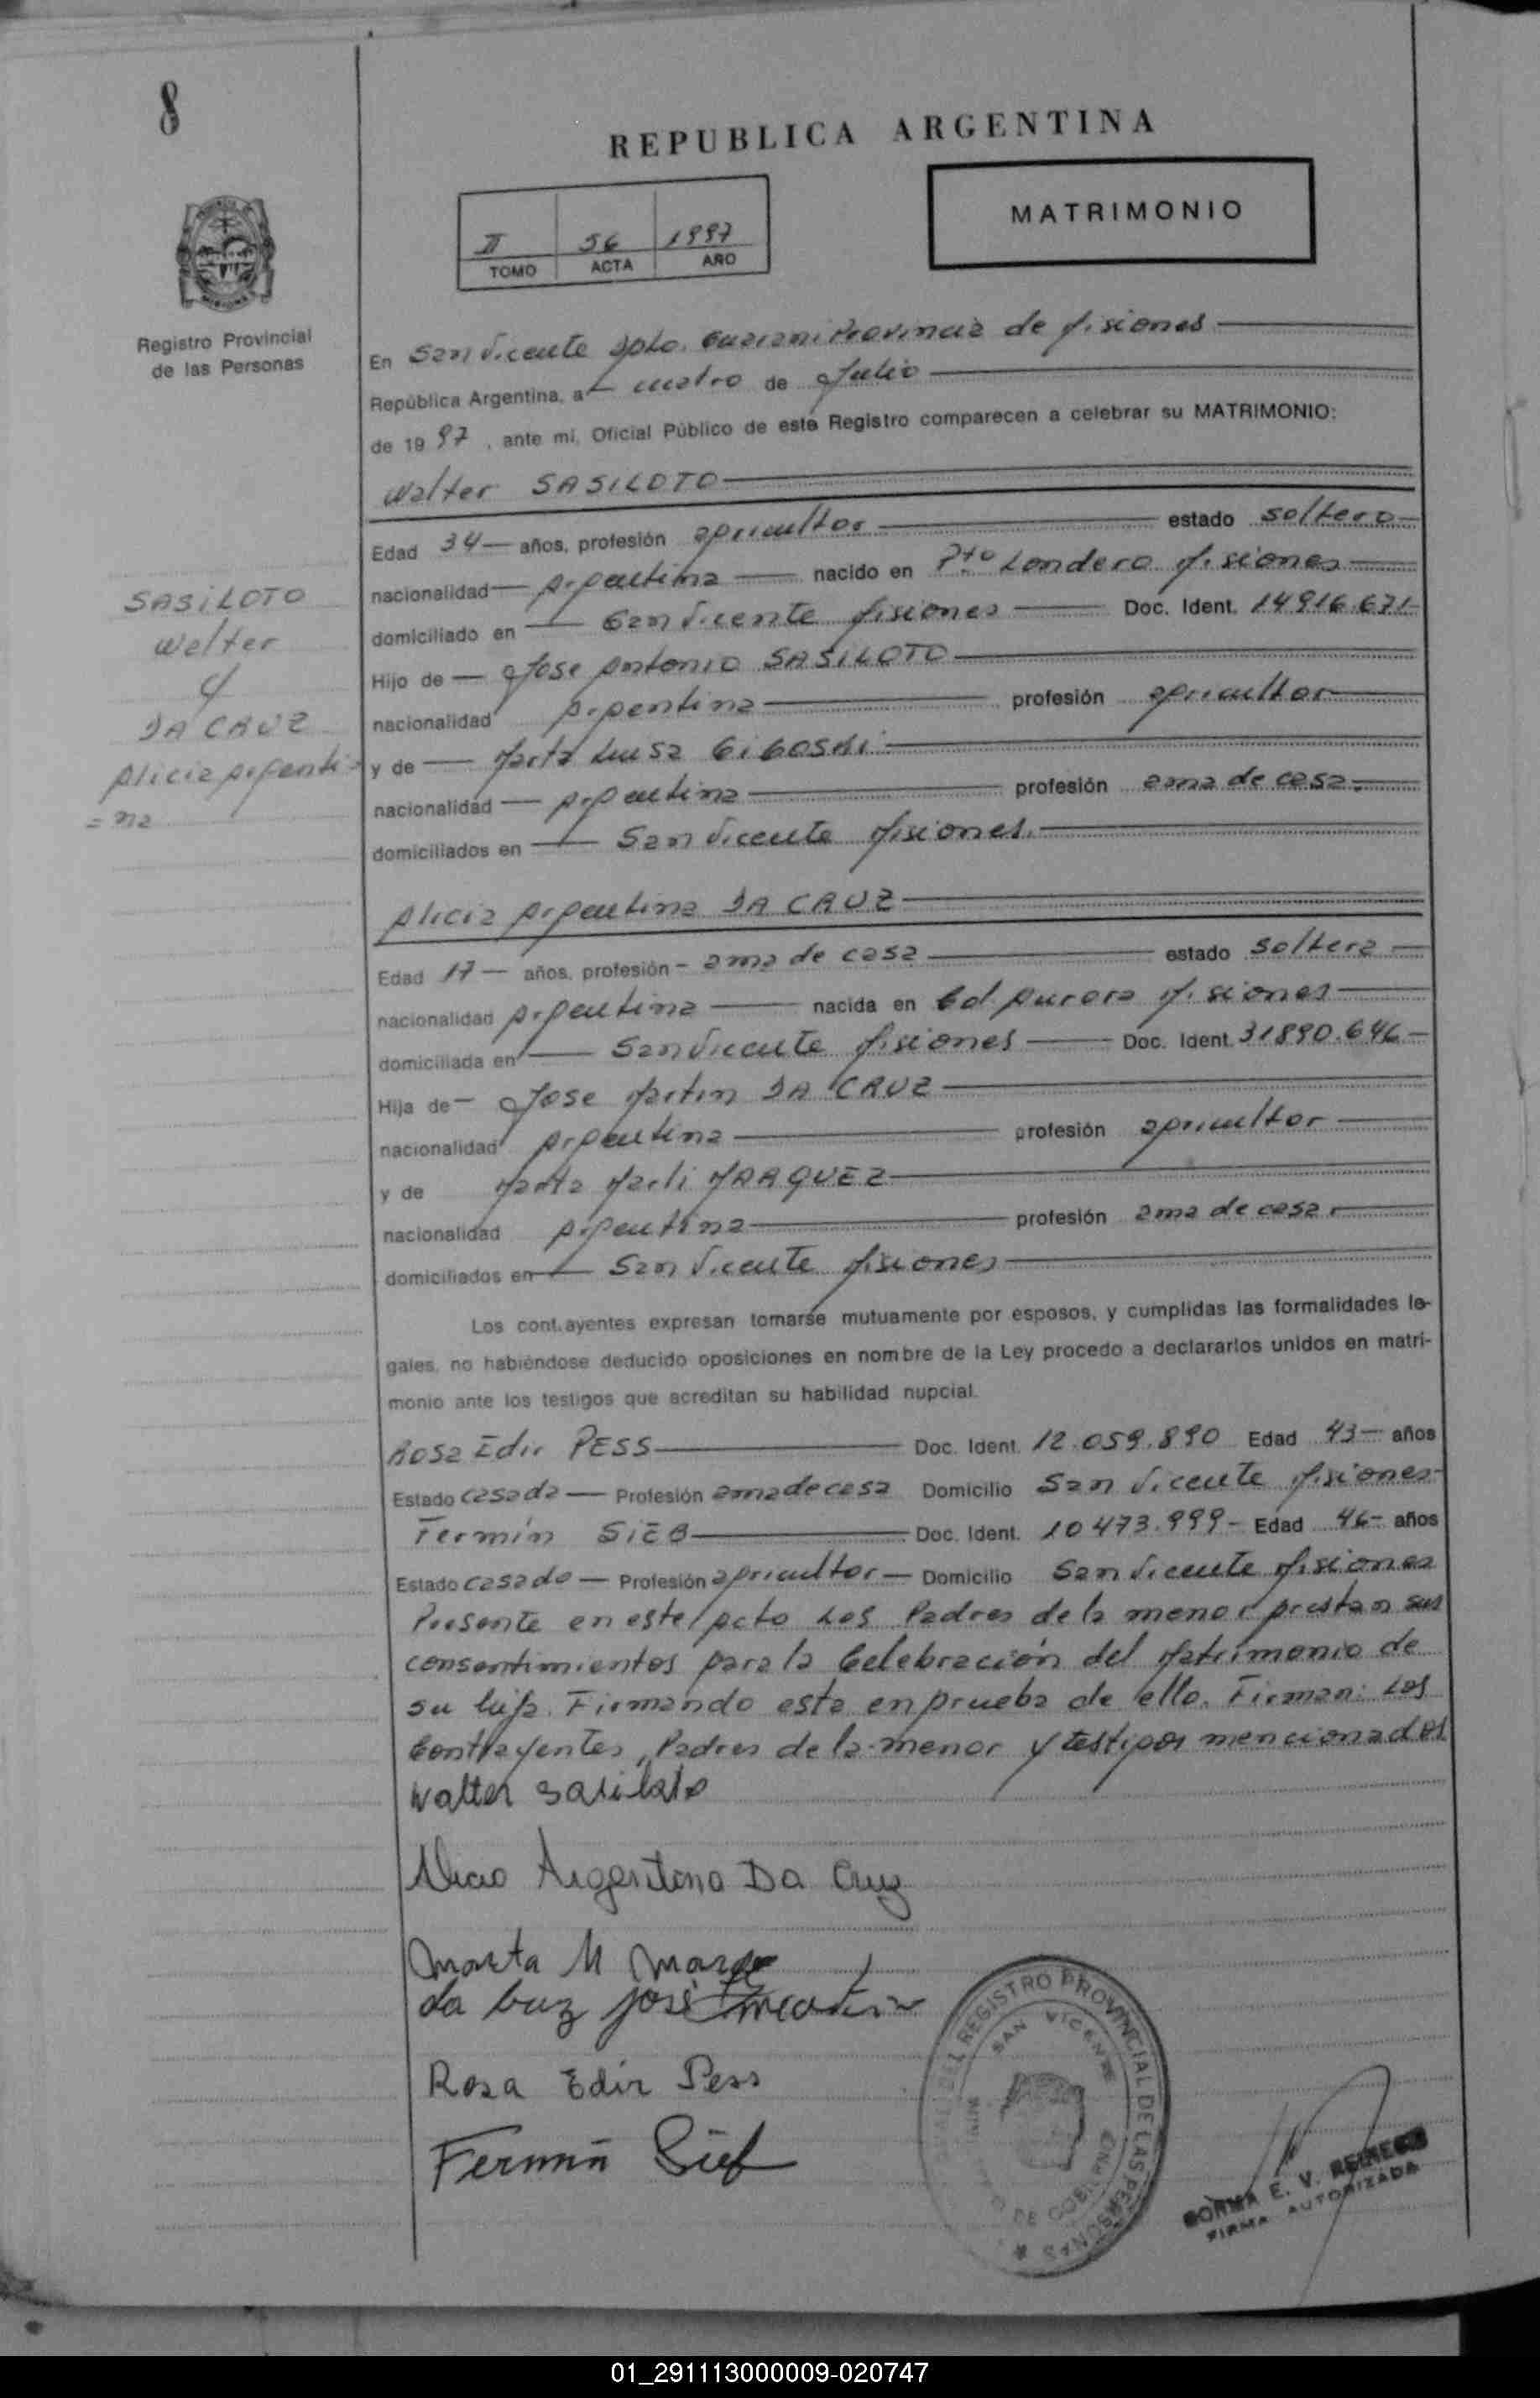 8
REPUBLICA ARGENTINA
MATRIMONIO
II 56 1997
TOMO ACTA AÑO
Registro Provincial
de las Personas
En San Vicente Dpto. Guarani Provincia de Misiones
República Argentina, a cuatro de Julio
de 19 97, ante mi, Oficial Público de este Registro comparecen a celebrar su MATRIMONIO:
Walter SASILOTO
Edad 34 años, profesión agricultor estado soltero
nacionalidad Argentina nacido en Pto Londero Misiones
domiciliado en San Vicente Misiones Doc. Ident. 14916.671
Hijo de Jose Antonio SASILOTO
nacionalidad Argentina profesión agricultor
y de Marta Luisa
nacionalidad Argentina profesión ama de casa
domiciliados en San Vicente Misiones.
SASILOTO
Walter
c/
DA CRUZ
Alicia Argenti
= na
Alicia Argentina DA CRUZ
Edad 17 años, profesión ama de casa estado soltera
nacionalidad Argentina nacida en Cd. Aurora Misiones
domiciliada en San Vicente Misiones Doc. Ident. 31890.646
Hija de Jose Martin DA CRUZ
nacionalidad Argentina profesión agricultor
y de Marta Marli MARQUEZ
nacionalidad Argentina profesión ama de casa
domiciliados en San Vicente Misiones
Los contrayentes expresan tomarse mutuamente por esposos, y cumplidas las formalidades le-
gales, no habiéndose deducido oposiciones en nombre de la Ley procedo a declararlos unidos en matri-
monio ante los testigos que acreditan su habilidad nupcial.
Rosa Edir PESS Doc. Ident. 12.059.890 Edad 43 años
Estado casada Profesión ama de casa Domicilio San Vicente Misiones
Fermin SIEB Doc. Ident. 10473.999 Edad 46 años
Estado casado Profesión agricultor Domicilio San Vicente Misiones
Presente en este Acto Los Padres de la menor prestan sus
consentimientos para la Celebración del Matrimonio de
su hija. Firmando esta en prueba de ello. Firman: Los
Contrayentes, Padres de la menor y testigos mencionados
Walter Sasiloto
Alicia Argentina Da Cruz
Marta M
da Cruz José Martin
Rosa Edir Pess
Fermin Sieb
REGISTRO PROVINCIAL DE LAS PERSONAS
SAN VICENTE
NORMA E. V.
FIRMA AUTORIZADA
01_291113000009-020747